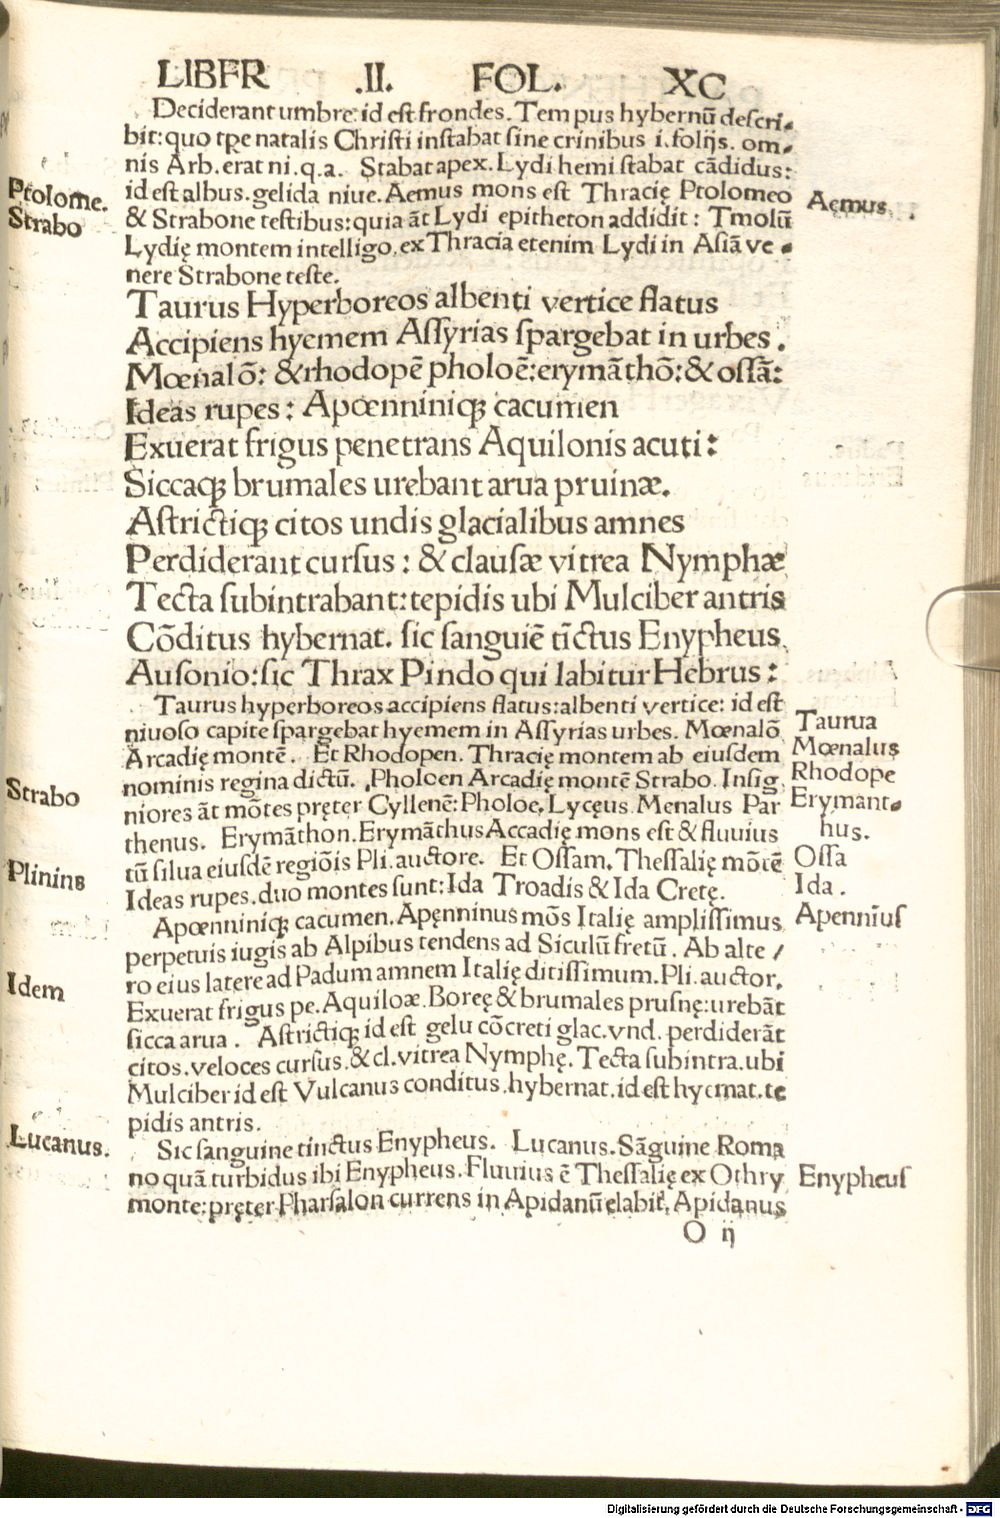 LIBER .II. FOL. XC
Deciderant umbre: id est frondes. Tempus hybernū descri-
bit: quo tpe natalis Christi instabat sine crinibus i. folijs. om-
nis Arb. erat ni. q. a. Stabat apex. Lydi hemi stabat cādidus:
id est albus. gelida niue. Aemus mons est Thracię Ptolomeo
& Strabone testibus: quia āt Lydi epitheton addidit: Tmolū
Lydię montem intelligo, ex Thracia etenim Lydi in Asiā ve-
nere Strabone teste.
Ptolome.
Strabo
Aemus.
Taurus Hyperboreos albenti vertice flatus
Accipiens hyemem Assyrias spargebat in urbes.
Mœnalō: & rhodopē pholoē: erymāthō: & ossā:
Ideas rupes: Apœnniniq; cacumen
Exuerat frigus penetrans Aquilonis acuti:
Siccaq; brumales urebant arua pruinæ.
Astrictiq; citos undis glacialibus amnes
Perdiderant cursus: & clausæ vitrea Nymphæ
Tecta subintrabant: tepidis ubi Mulciber antris
Cōditus hybernat. sic sanguiē tīctus Enypheus
Ausonio: sic Thrax Pindo qui labitur Hebrus:
Taurus hyperboreos accipiens flatus: albenti vertice: id est
niuoso capite spargebat hyemem in Assyrias urbes. Mœnalō
Arcadię montē. Et Rhodopen. Thracię montem ab eiusdem
nominis regina dictū. Pholoen Arcadię montē Strabo. Insig
niores āt mōtes pręter Cyllenē: Pholoe, Lycęus. Menalus Par
thenus. Erymāthon. Erymāthus Accadię mons est & fluuius
tū silua eiusdē regiōis Pli. auctore. Et Ossam. Thessalię mōtē
Ideas rupes. duo montes sunt: Ida Troadis & Ida Cretę.
Strabo
Plinins
Taurua
Mœnalus
Rhodope
Erymant-
hus.
Ossa
Ida.
Apœnniniq; cacumen. Apęnninus mōs Italię amplissimus
perpetuis iugis ab Alpibus tendens ad Siculū fretū. Ab alte /
ro eius latere ad Padum amnem Italię ditissimum. Pli. auctor.
Exuerat frigus pe. Aquiloæ. Boreę & brumales prusnę: urebāt
sicca arua. Astrictiq; id est gelu cōcreti glac. vnd. perdiderāt
citos. veloces cursus. & cl. vitrea Nymphę. Tecta subintra. ubi
Mulciber id est Vulcanus conditus. hybernat. id est hyemat. te
pidis antris.
Idem
Apennīus
Sic sanguine tinctus Enypheus. Lucanus. Sāguine Roma
no quā turbidus ibi Enypheus. Fluuius ē Thessalię ex Othry
monte: pręter Pharsalon currens in Apidanū elabit, Apidanus
Lucanus.
Enypheus
O ij
Digitalisierung gefördert durch die Deutsche Forschungsgemeinschaft - DFG